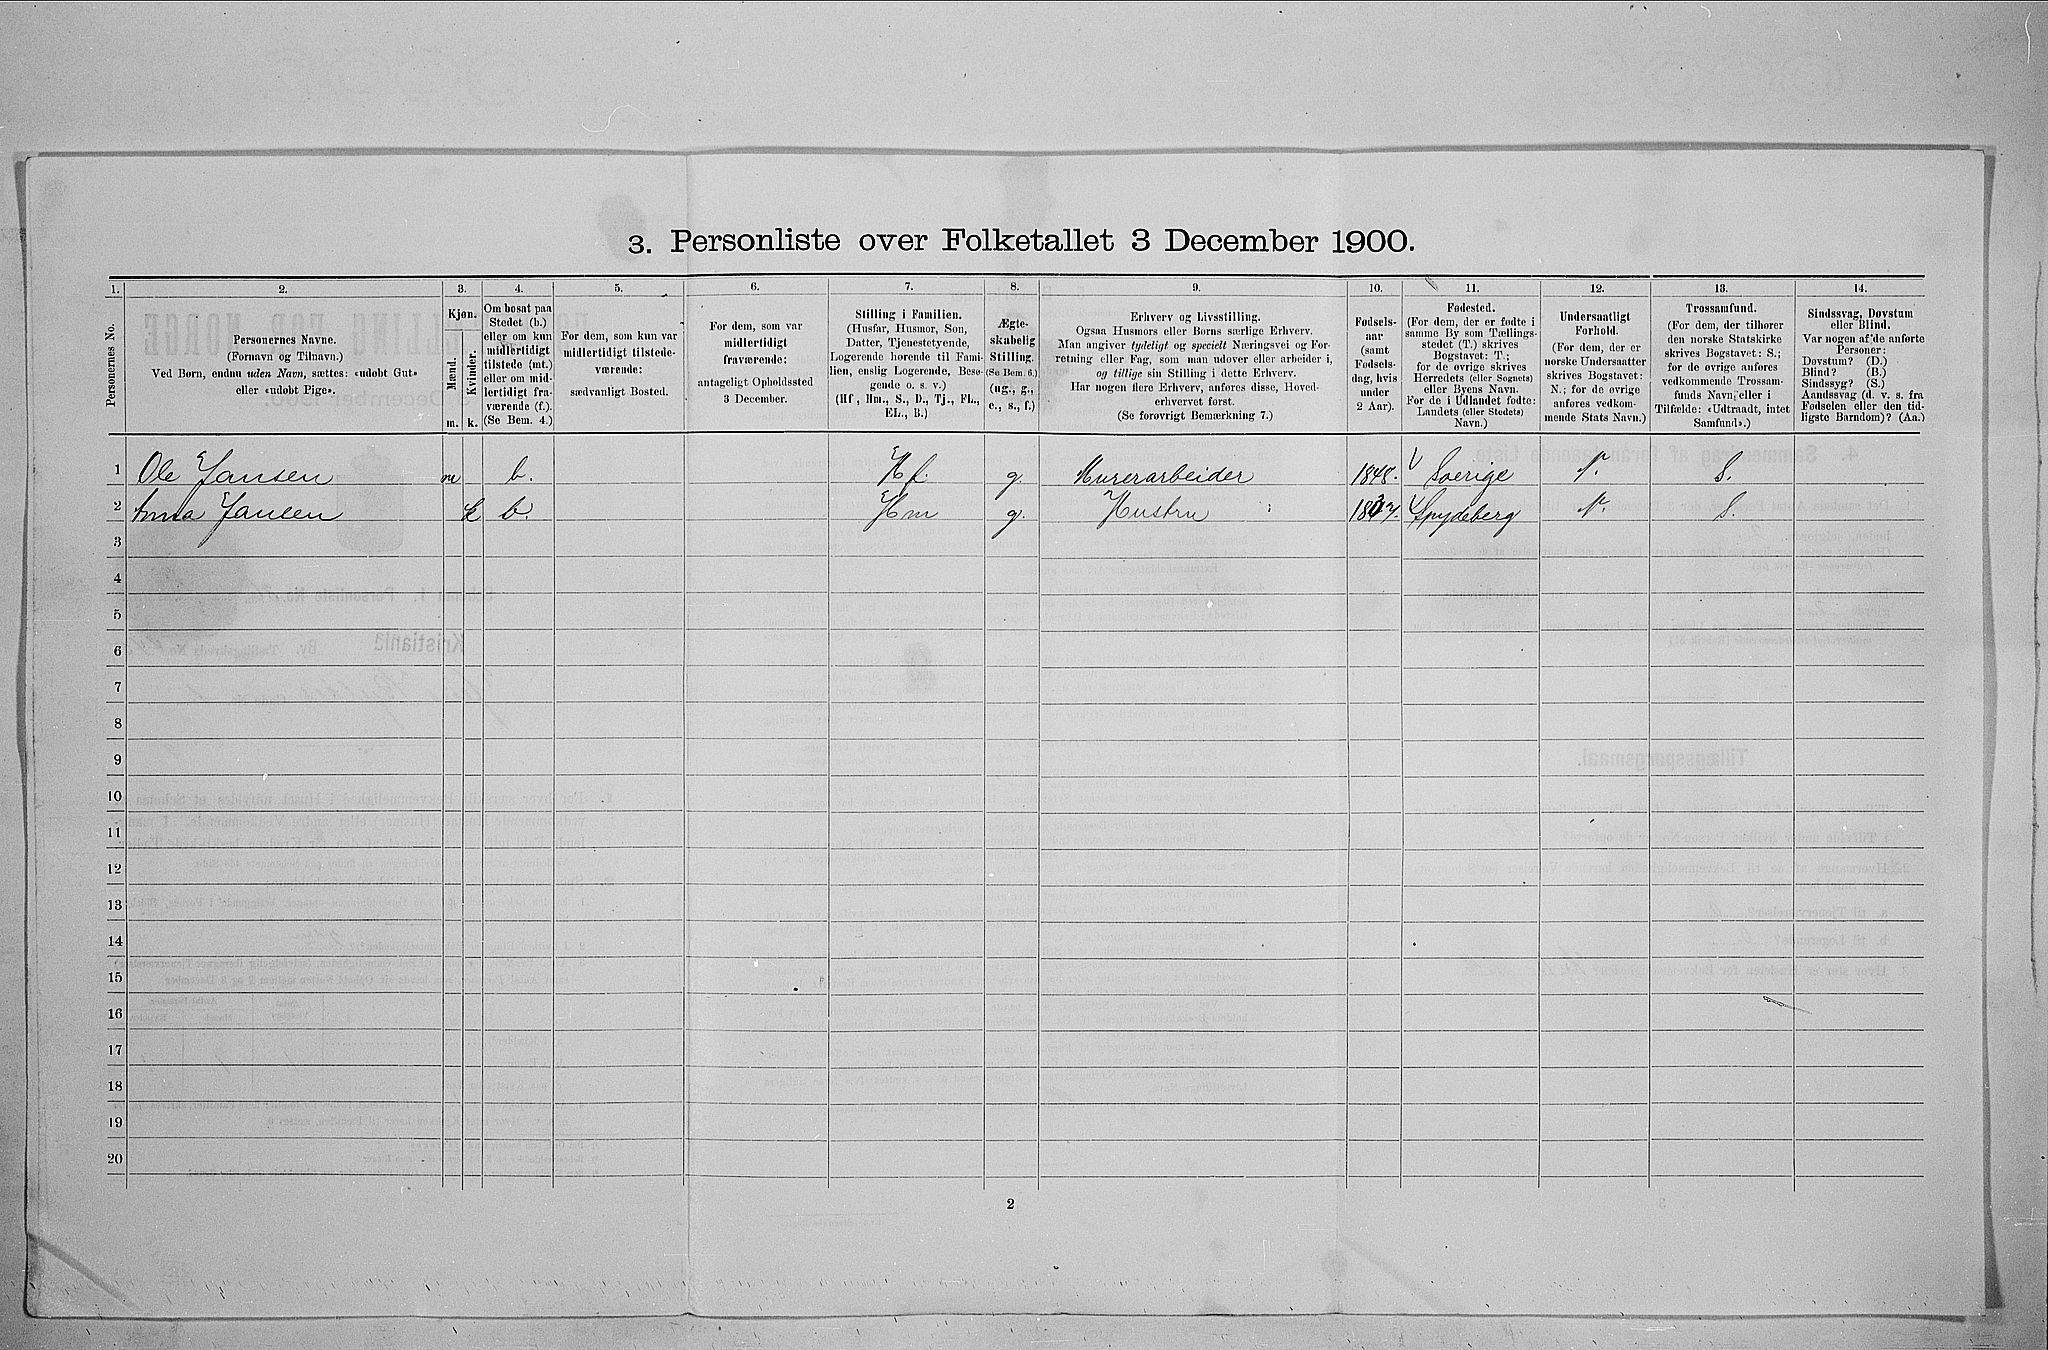 3. Personliste over Folketallet 3 December 1900.
1. 2. 3. 4. 5. 6. 7. 8. 9. 10. 11. 12. 13. 14.
Personernes No.
Personernes Navne.
(Fornavn og Tilnavn.)
Ved Børn, endnu uden Navn, sættes: «udøbt Gut»
eller «udøbt Pige».
Kjøn.
Mænd.
Kvinder.
m. k.
Om bosat paa
Stedet (b.)
eller om kun
midlertidigt
tilstede (mt.)
eller om mid-
lertidigt fra-
værende (f.).
(Se Bem. 4.)
For dem, som kun var
midlertidigt tilstede-
værende:
sædvanligt Bosted.
For dem, som var
midlertidigt
fraværende:
antageligt Opholdssted
3 December.
Stilling i Familien.
(Husfar, Husmor, Søn,
Datter, Tjenestetyende,
Logerende hørende til Fami-
lien, enslig Logerende, Besø-
gende o. s. v.)
(Hf., Hm., S., D., Tj., FL.,
EL., B.)
Ægte-
skabelig
Stilling.
(Se Bem. 6.)
(ug., g.,
e., s., f.)
Erhverv og Livsstilling.
Ogsaa Husmors eller Børns særlige Erhverv.
Man angiver tydeligt og specielt Næringsvei og For-
retning eller Fag, som man udøver eller arbeider i,
og tillige sin Stilling i dette Erhverv.
Har nogen flere Erhverv, anføres disse, Hoved-
erhvervet først.
(Se forøvrigt Bemærkning 7.)
Fødsels-
aar
(samt
Fødsels-
dag, hvis
under
2 Aar).
Fødested.
(For dem, der er fødte i
samme By som Tællings-
stedet (T.) skrives
Bogstavet: T.;
for de øvrige skrives
Herredets (eller Sognets)
eller Byens Navn.
For de i Udlandet fødte:
Landets (eller Stedets)
Navn.)
Undersaatligt
Forhold.
(For dem, der er
norske Undersaatter
skrives Bogstavet:
N.; for de øvrige
anføres vedkom-
mende Stats Navn.)
Trossamfund.
(For dem, der tilhører
den norske Statskirke
skrives Bogstavet: S.;
for de øvrige anføres
vedkommende Trossam-
funds Navn, eller i
Tilfælde: «Udtraadt, intet
Samfund».)
Sindssvag, Døvstum
eller Blind.
Var nogen af de anførte
Personer:
Døvstum? (D.)
Blind? (B.)
Sindssyg? (S.)
Aandssvag (d. v. s. fra
Fødselen eller den tid-
ligste Barndom)? (Aa.)
1 Ole Jansen m b. Hf. g. Murerarbeider 1848. Sverige N. S.
2 Anna Jansen k b. Hm g. Hustru Spydeberg N. S.
3
4
5
6
7
8
9
10
11
12
13
14
15
16
17
18
19
20
2